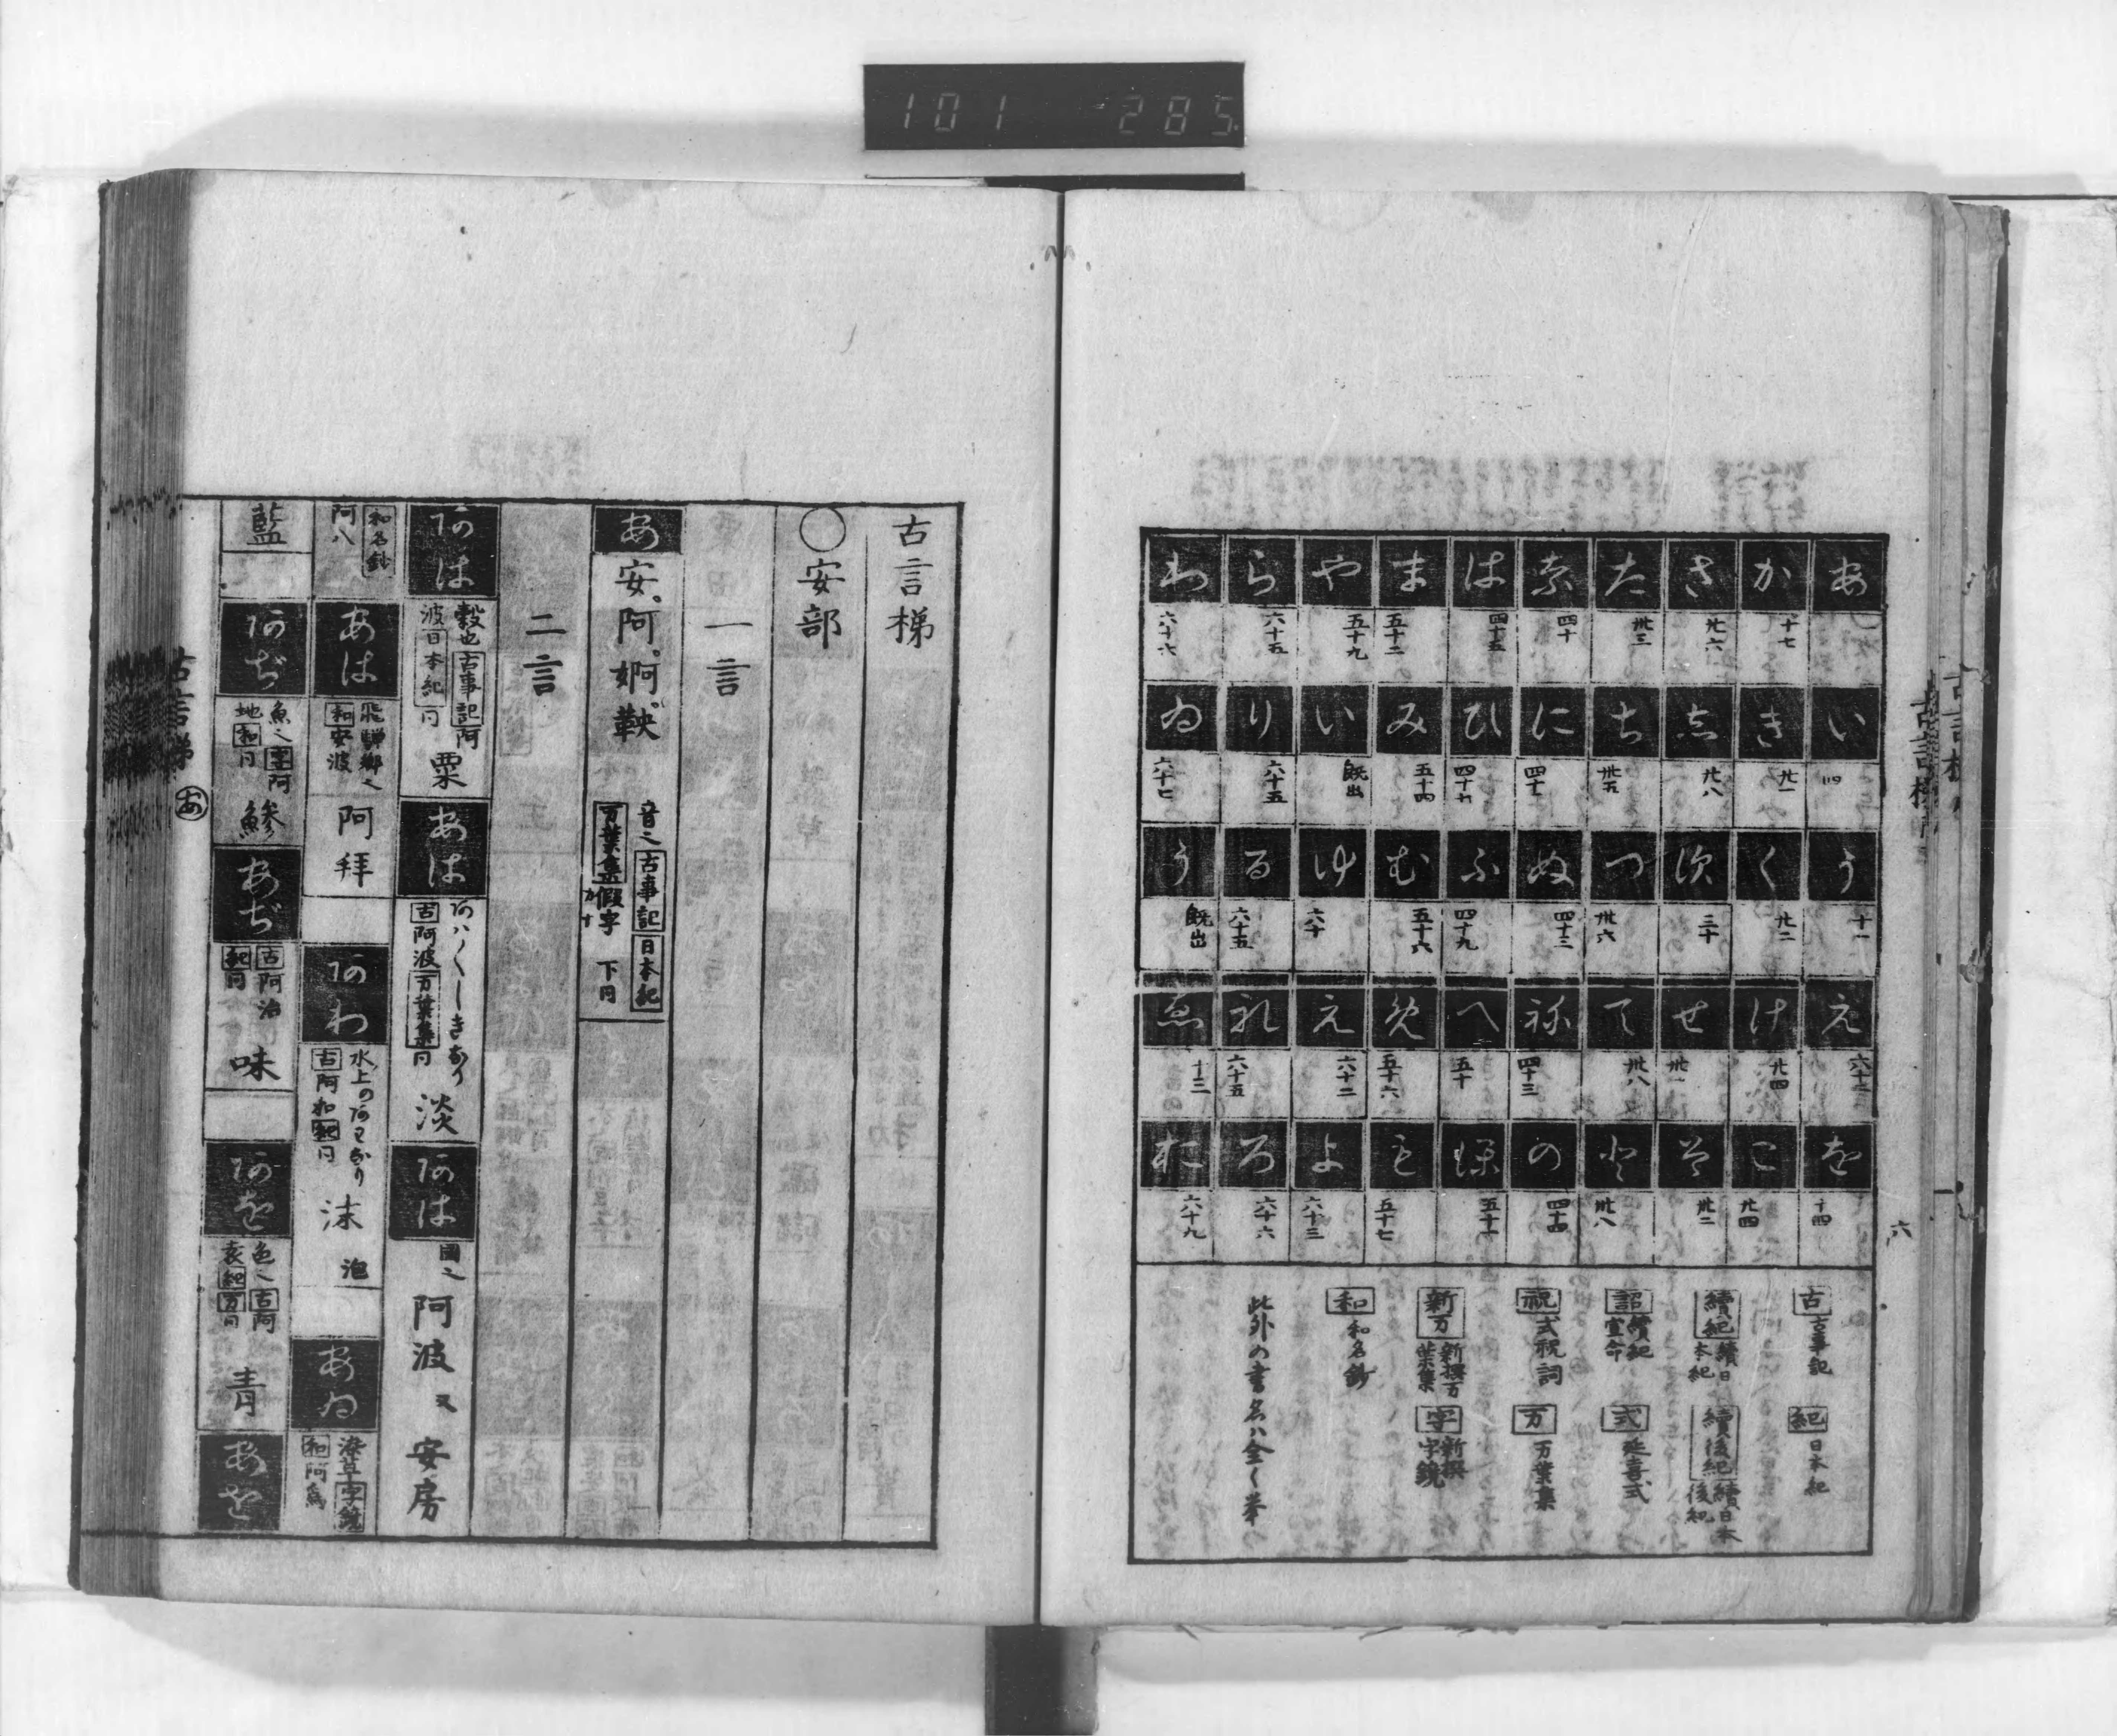 101 285
あ
い 四
う 十一
え 六十二
を 十四
か 十七
き 廿一
く 廿二
け 廿四
こ 廿四
さ 廿六
志 廿八
須 三十
せ 卅一
そ 卅二
た 卅三
ち 卅五
つ 卅六
て 卅八
と 卅八
奈 四十
に 四十一
ぬ 四十三
祢 四十三
の 四十四
は 四十五
ひ 四十七
ふ 四十九
へ 五十
ほ 五十一
ま 五十二
み 五十四
む 五十六
め 五十六
も 五十七
や 五十九
い 既出
ゆ 六十
え 六十二
よ 六十三
ら 六十五
り 六十五
る 六十五
れ 六十五
ろ 六十六
わ 六十六
ゐ 六十七
う 既出
ゑ 十三
於 六十九
古 古事記 紀 日本紀
續紀 續日本紀 續後紀 續日本後紀
詔 續紀宣命 式 延喜式
祝 式祝詞 万 万葉集
新万 新撰万葉集 字 新撰字鏡
和 和名鈔
此外の書名ハ全く挙
六
古言梯
○安部
一言
あ 安。阿。婀。鞅。 音之 古事記 日本紀 万葉集 假字 下同
二言
阿は 穀也 古事記 阿波 日本紀 同 粟 あは 古 阿波 万葉集 同 淡 阿は 國之 阿波 又 安房
和名鈔 阿八 あは 飛騨郷之 和 安波 阿拜 阿わ 水上の阿わなり 古 阿和 紀 同 沫 泡 あゐ 字鏡 和 阿為
藍 阿ぢ 魚之 字 阿地 和 同 鰺 あぢ 古 阿治 紀 同 味 阿を 色之 古 阿袁 紀 万 同 青 あを
古言梯 あ